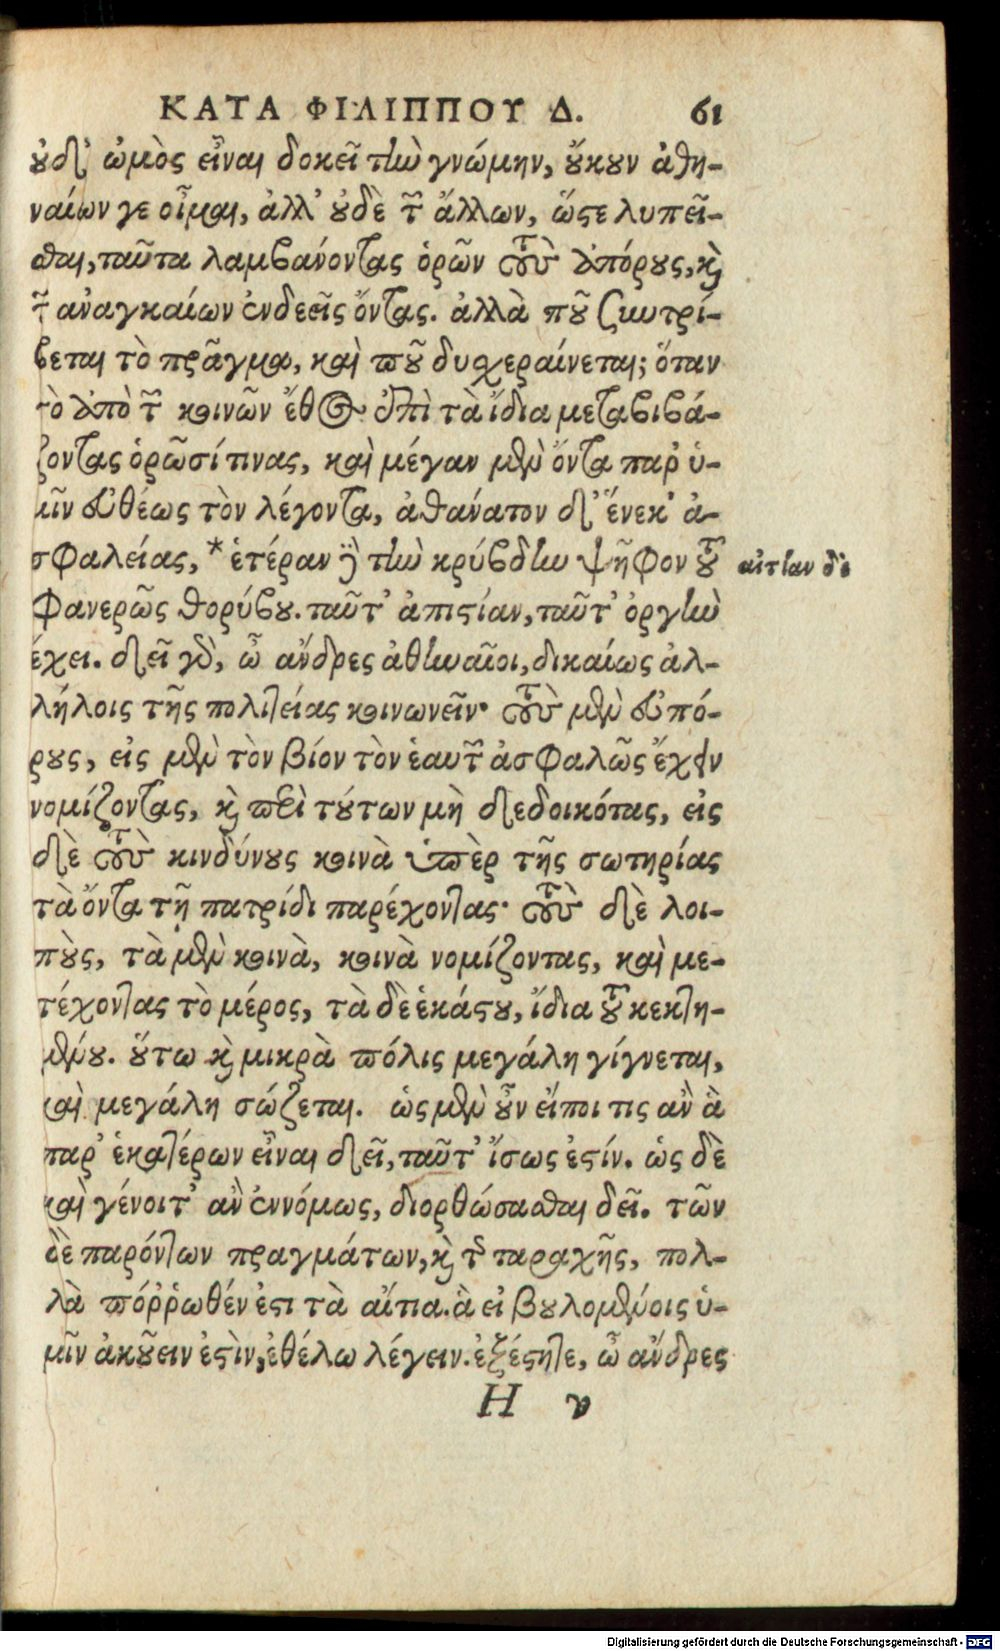 ΚΑΤΑ ΦΙΛΙΠΠΟΥ Δ. 61
ουδ' ὠμὸς εἶναι δοκεῖ τὴν γνώμην, οὔκουν ἀθη-
ναίων γε οἶμαι, ἀλλ' οὐδὲ τῶν ἄλλων, ὥστε λυπεῖ-
σθαι, ταῦτα λαμβάνοντας ὁρῶν τοὺς ἀπόρους, καὶ
τῶν ἀναγκαίων ἐνδεεῖς ὄντας. ἀλλὰ ποῦ συντρί-
βεται τὸ πρᾶγμα, καὶ ποῦ δυσχεραίνεται; ὅταν
τὸ ἀπὸ τῶν κοινῶν ἔθος ἐπὶ τὰ ἴδια μεταβιβά-
ζοντας ὁρῶσί τινας, καὶ μέγαν μὲν ὄντα παρ' ὑ-
μῖν εὐθέως τὸν λέγοντα, ἀθάνατον δ' ἕνεκ' ἀ-
σφαλείας, * ἑτέραν δὲ τὴν κρύβδην ψῆφον τοῦ
αἰτίαν δὲ
φανερῶς θορύβου. ταῦτ' ἀπιστίαν, ταῦτ' ὀργὴν
ἔχει. δεῖ γὰρ, ὦ ἄνδρες ἀθηναῖοι, δικαίως ἀλ-
λήλοις τῆς πολιτείας κοινωνεῖν· τοὺς μὲν εὐπό-
ρους, εἰς μὲν τὸν βίον τὸν ἑαυτῶν ἀσφαλῶς ἔχειν
νομίζοντας, καὶ περὶ τούτων μὴ δεδοικότας, εἰς
δὲ τοὺς κινδύνους κοινὰ ὑπὲρ τῆς σωτηρίας
τὰ ὄντα τῇ πατρίδι παρέχοντας· τοὺς δὲ λοι-
ποὺς, τὰ μὲν κοινὰ, κοινὰ νομίζοντας, καὶ με-
τέχοντας τὸ μέρος, τὰ δὲ ἑκάστου, ἴδια τοῦ κεκτη-
μένου. οὕτω καὶ μικρὰ πόλις μεγάλη γίγνεται,
καὶ μεγάλη σώζεται. ὡς μὲν οὖν εἴποι τις ἂν ἃ
παρ' ἑκατέρων εἶναι δεῖ, ταῦτ' ἴσως ἐστίν. ὡς δὲ
καὶ γένοιτ' ἂν ἐννόμως, διορθώσασθαι δεῖ. τῶν
δὲ παρόντων πραγμάτων, καὶ τῆς ταραχῆς, πολ-
λὰ πόῤῥωθέν ἐστι τὰ αἴτια. ἃ εἰ βουλομένοις ὑ-
μῖν ἀκούειν ἐστὶν, ἐθέλω λέγειν. ἐξέστητε, ὦ ἄνδρες
Η ν
Digitalisierung gefördert durch die Deutsche Forschungsgemeinschaft - DFG